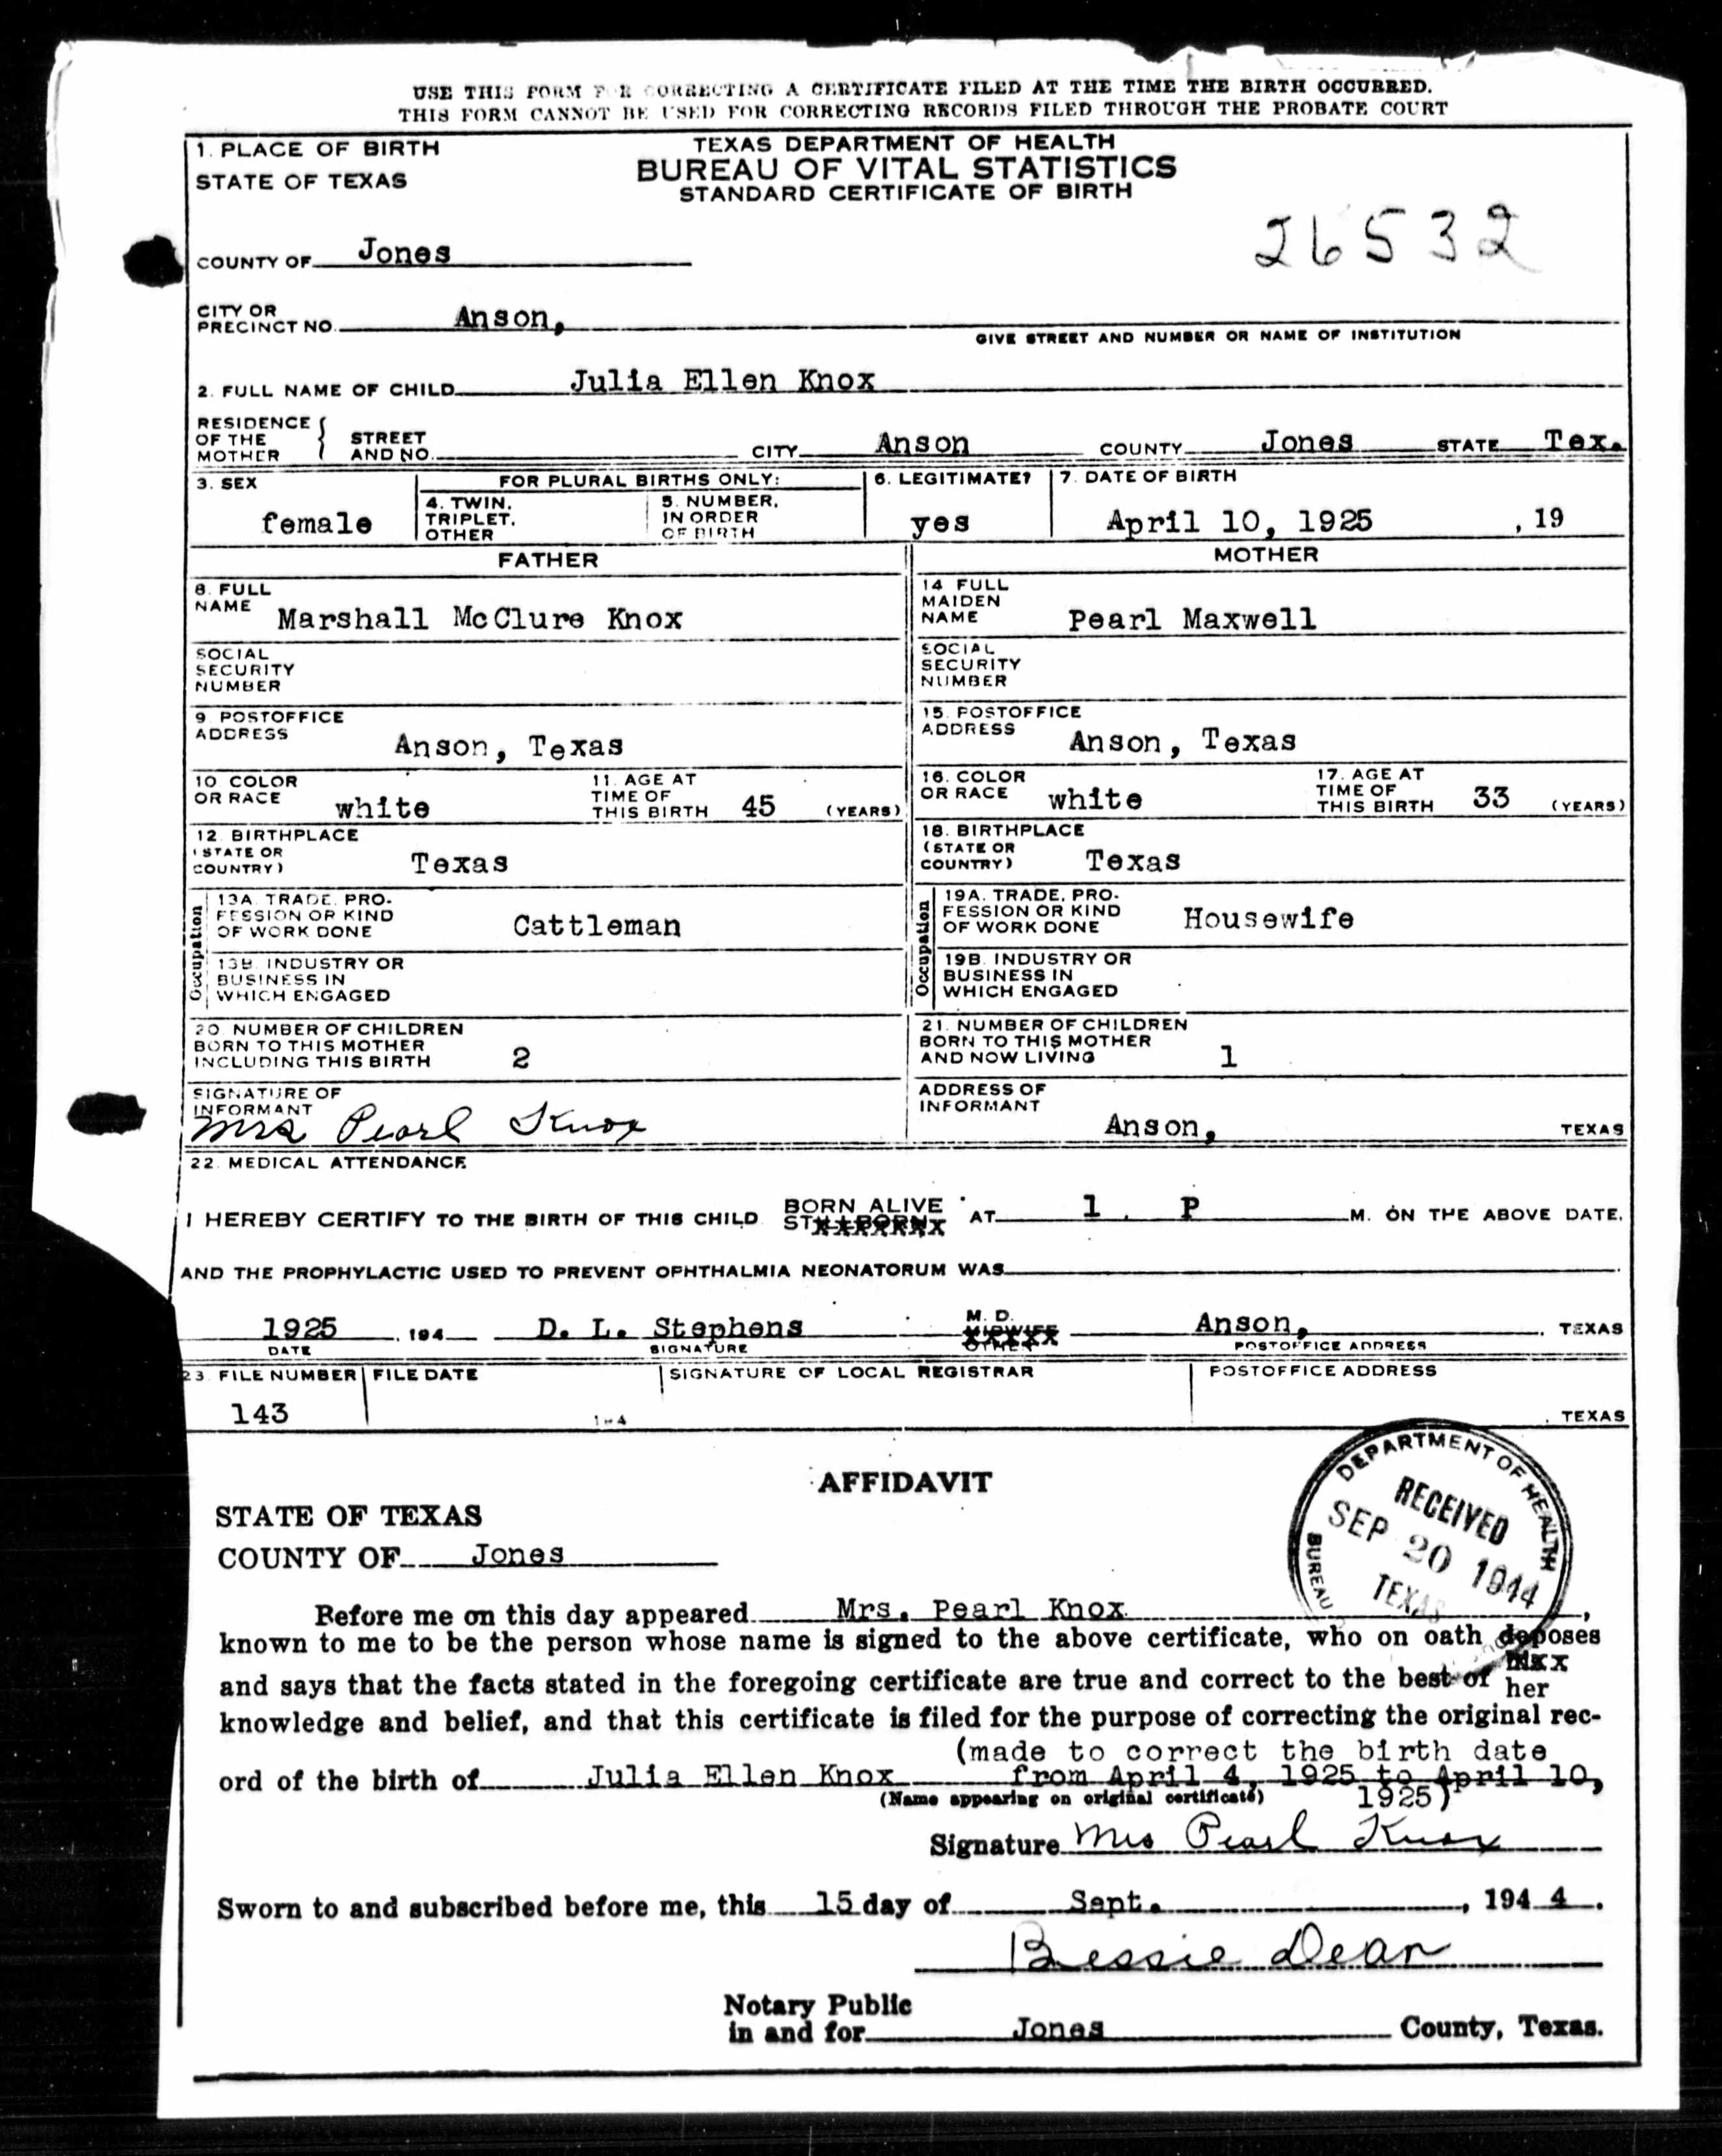 USE THIS FORM FOR CORRECTING A CERTIFICATE FILED AT THE TIME THE BIRTH OCCURRED.
THIS FORM CANNOT BE USED FOR CORRECTING RECORDS FILED THROUGH THE PROBATE COURT
1. PLACE OF BIRTH
STATE OF TEXAS
TEXAS DEPARTMENT OF HEALTH
BUREAU OF VITAL STATISTICS
STANDARD CERTIFICATE OF BIRTH
26532
COUNTY OF Jones
CITY OR
PRECINCT NO. Anson,
GIVE STREET AND NUMBER OR NAME OF INSTITUTION
2. FULL NAME OF CHILD Julia Ellen Knox
RESIDENCE
OF THE
MOTHER
STREET
AND NO. CITY Anson COUNTY Jones STATE Tex.
3. SEX
female
FOR PLURAL BIRTHS ONLY:
4. TWIN,
TRIPLET,
OTHER
5. NUMBER,
IN ORDER
OF BIRTH
6. LEGITIMATE?
yes
7. DATE OF BIRTH
April 10, 1925 , 19
FATHER
MOTHER
8. FULL
NAME Marshall McClure Knox
14 FULL
MAIDEN
NAME Pearl Maxwell
SOCIAL
SECURITY
NUMBER
SOCIAL
SECURITY
NUMBER
9. POSTOFFICE
ADDRESS Anson, Texas
15. POSTOFFICE
ADDRESS Anson, Texas
10 COLOR
OR RACE white
11. AGE AT
TIME OF
THIS BIRTH 45 (YEARS)
16. COLOR
OR RACE white
17. AGE AT
TIME OF
THIS BIRTH 33 (YEARS)
12. BIRTHPLACE
(STATE OR
COUNTRY) Texas
18. BIRTHPLACE
(STATE OR
COUNTRY) Texas
Occupation
13A. TRADE, PRO-
FESSION OR KIND
OF WORK DONE Cattleman
13B. INDUSTRY OR
BUSINESS IN
WHICH ENGAGED
Occupation
19A. TRADE, PRO-
FESSION OR KIND
OF WORK DONE Housewife
19B. INDUSTRY OR
BUSINESS IN
WHICH ENGAGED
20. NUMBER OF CHILDREN
BORN TO THIS MOTHER
INCLUDING THIS BIRTH 2
21. NUMBER OF CHILDREN
BORN TO THIS MOTHER
AND NOW LIVING 1
SIGNATURE OF
INFORMANT
Mrs Pearl Knox
ADDRESS OF
INFORMANT
Anson, TEXAS
22. MEDICAL ATTENDANCE
I HEREBY CERTIFY TO THE BIRTH OF THIS CHILD BORN ALIVE AT 1 P M. ON THE ABOVE DATE,
STILLBORN
AND THE PROPHYLACTIC USED TO PREVENT OPHTHALMIA NEONATORUM WAS
1925 , 194 D. L. Stephens M. D. Anson, TEXAS
MIDWIFE
OTHER
DATE SIGNATURE POSTOFFICE ADDRESS
23. FILE NUMBER FILE DATE SIGNATURE OF LOCAL REGISTRAR POSTOFFICE ADDRESS
143 TEXAS
AFFIDAVIT
DEPARTMENT OF HEALTH
RECEIVED
SEP 20 1944
TEXAS
BUREAU
STATE OF TEXAS
COUNTY OF Jones
Before me on this day appeared Mrs. Pearl Knox ,
known to me to be the person whose name is signed to the above certificate, who on oath deposes
and says that the facts stated in the foregoing certificate are true and correct to the best of hisxx
her
knowledge and belief, and that this certificate is filed for the purpose of correcting the original rec-
(made to correct the birth date
ord of the birth of Julia Ellen Knox from April 4, 1925 to April 10,
(Name appearing on original certificate) 1925)
Signature Mrs Pearl Knox
Sworn to and subscribed before me, this 15 day of Sept. , 1944.
Bessie Dean
Notary Public
in and for Jones County, Texas.